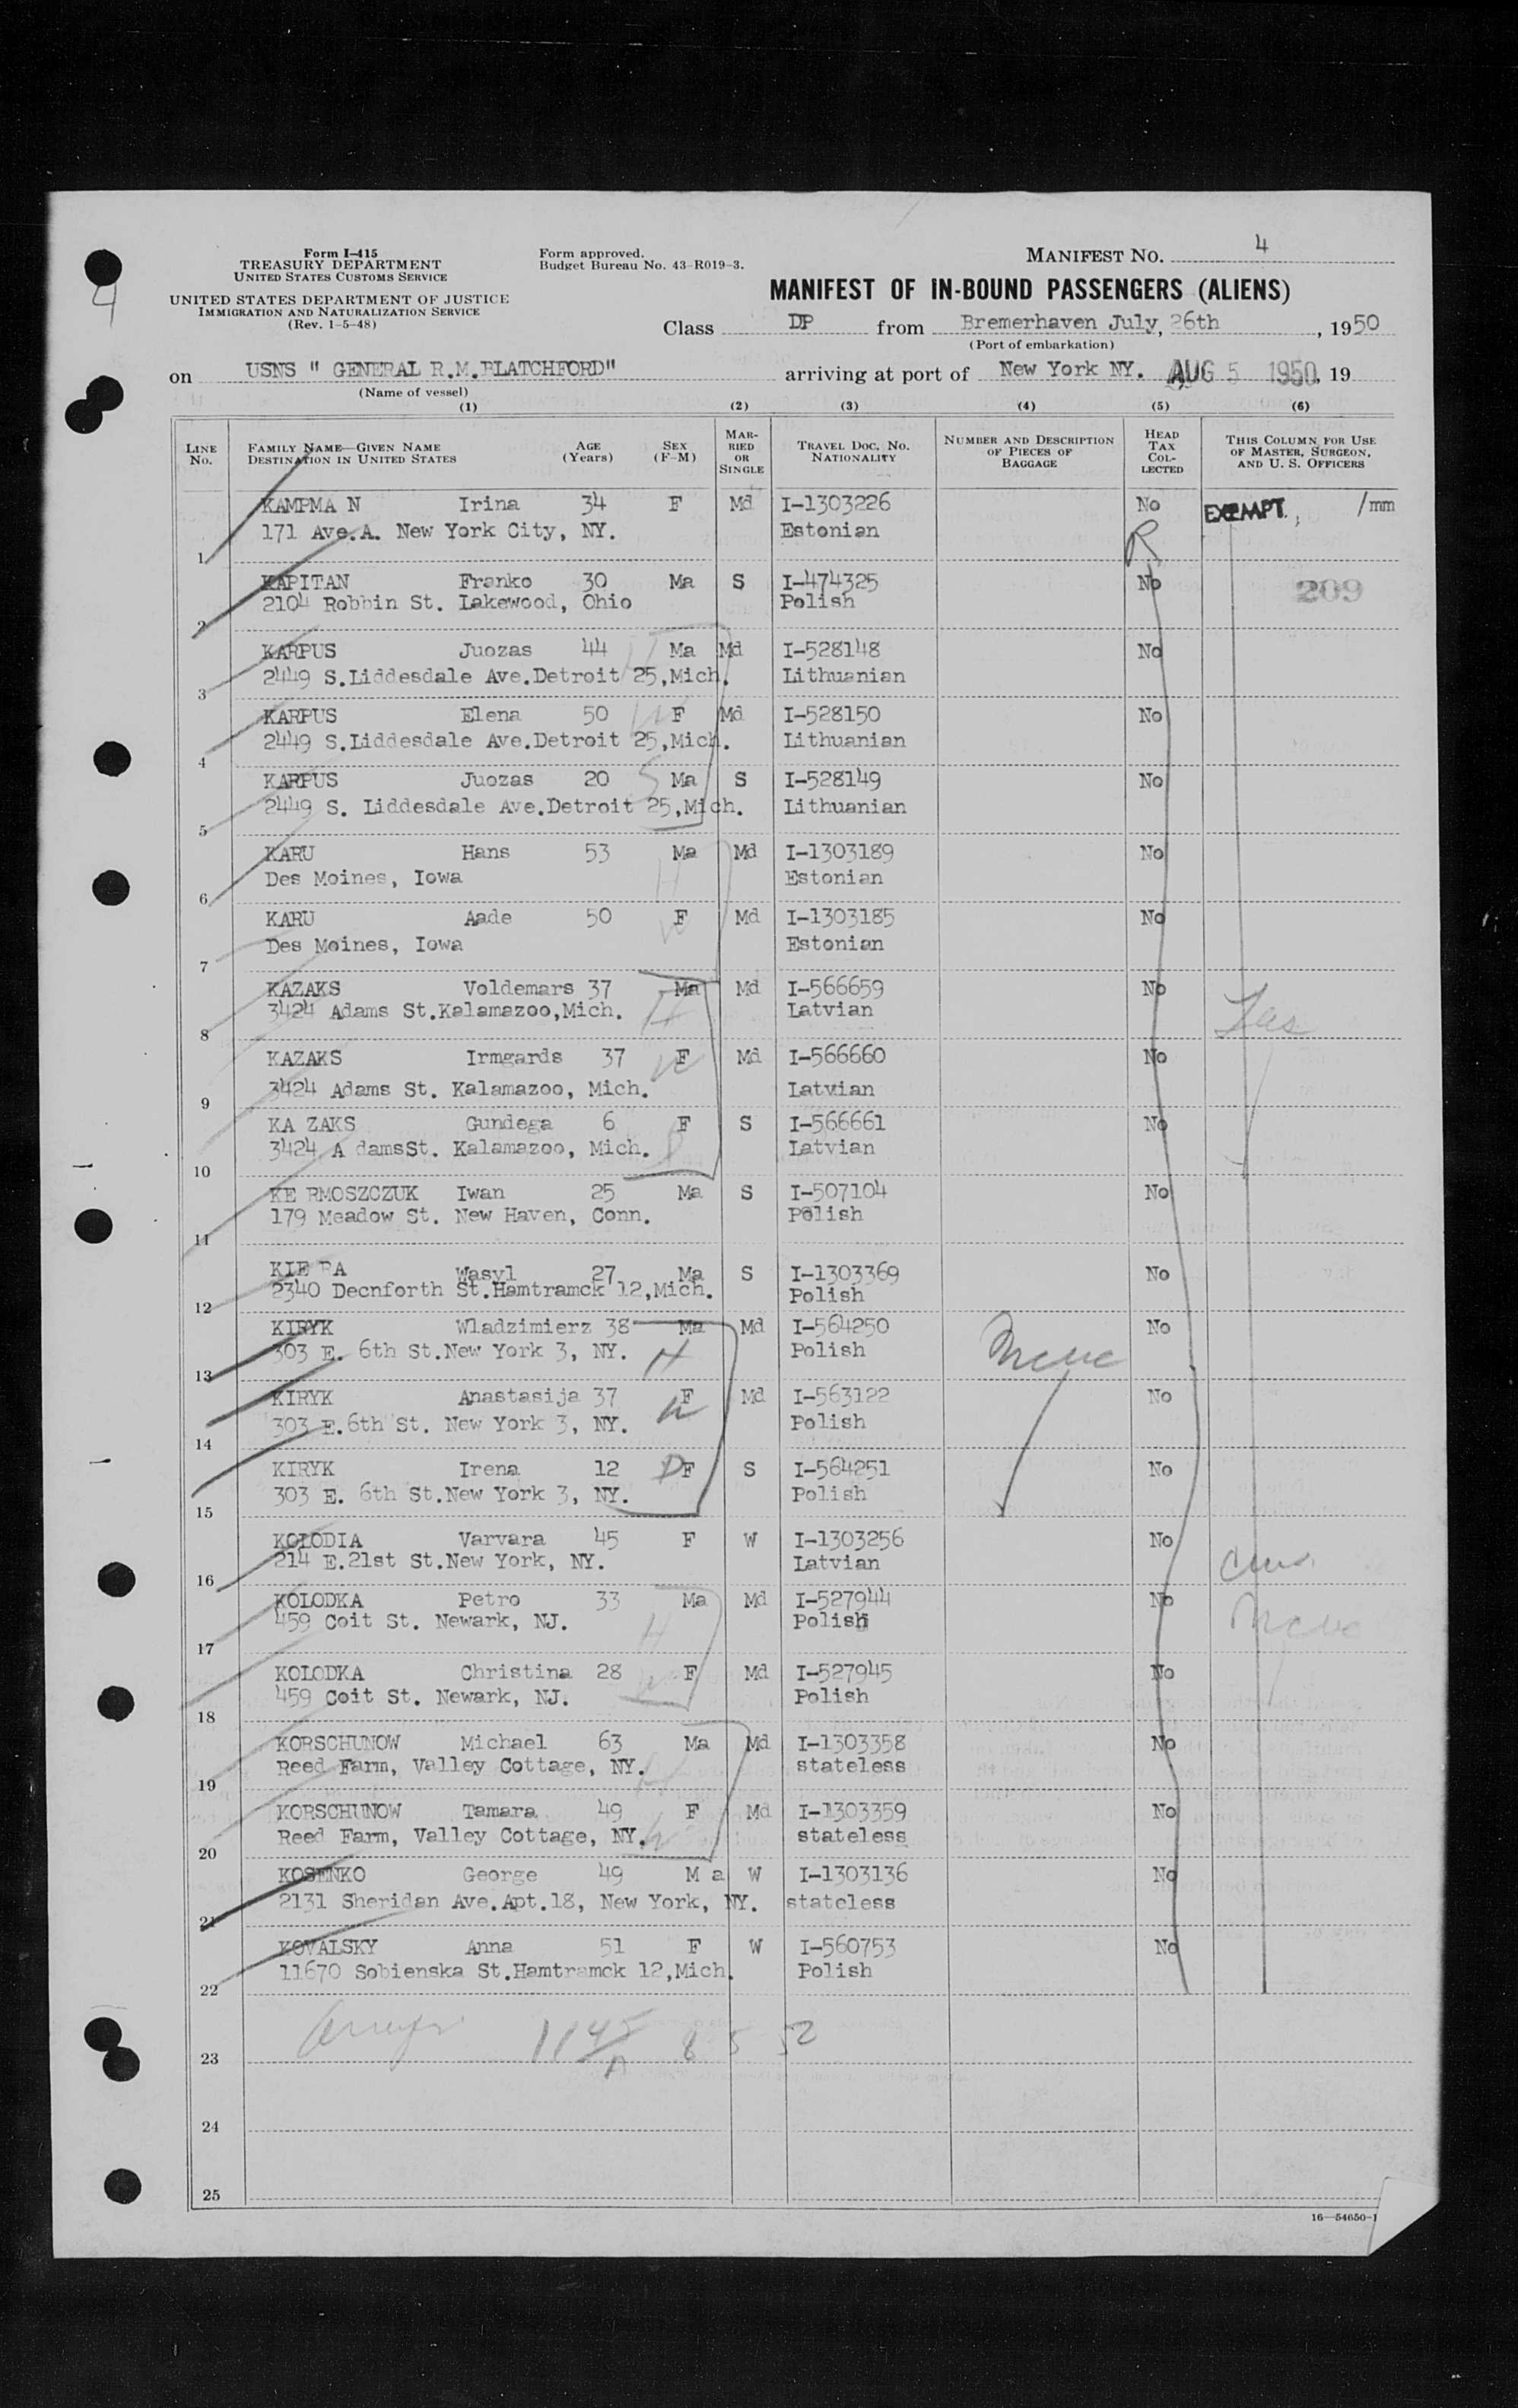 4
Form I-415
TREASURY DEPARTMENT
UNITED STATES CUSTOMS SERVICE
UNITED STATES DEPARTMENT OF JUSTICE
IMMIGRATION AND NATURALIZATION SERVICE
(Rev. 1-5-48)
Form approved.
Budget Bureau No. 43-R019-3.
MANIFEST NO. 4
MANIFEST OF IN-BOUND PASSENGERS (ALIENS)
Class DP from Bremerhaven July, 26th, 1950
(Port of embarkation)
on USNS " GENERAL R.M.BLATCHFORD" arriving at port of New York NY. AUG 5 1950, 19
(Name of vessel)
(1) (2) (3) (4) (5) (6)
LINE No. FAMILY NAME—GIVEN NAME DESTINATION IN UNITED STATES AGE (Years) SEX (F-M) MARRIED OR SINGLE TRAVEL DOC. NO. NATIONALITY NUMBER AND DESCRIPTION OF PIECES OF BAGGAGE HEAD TAX COLLECTED THIS COLUMN FOR USE OF MASTER, SURGEON, AND U. S. OFFICERS
KAMPMA N Irina 34 F Md I-1303226 No EXEMPT /mm
1 171 Ave.A. New York City, NY. Estonian R
KAPITAN Franko 30 Ma S I-474325 No 209
2 2104 Robbin St. Lakewood, Ohio Polish
KARPUS Juozas 44 Ma Md I-528148 No
3 2449 S.Liddesdale Ave.Detroit 25,Mich. Lithuanian
KARPUS Elena 50 W F Md I-528150 No
4 2449 S.Liddesdale Ave.Detroit 25,Mich. Lithuanian
KARPUS Juozas 20 S Ma S I-528149 No
5 2449 S. Liddesdale Ave.Detroit 25,Mich. Lithuanian
KARU Hans 53 Ma Md I-1303189 No
6 Des Moines, Iowa H Estonian
KARU Aade 50 F Md I-1303185 No
7 Des Moines, Iowa W Estonian
KAZAKS Voldemars 37 Ma Md I-566659 No
8 3424 Adams St.Kalamazoo,Mich. H Latvian
KAZAKS Irmgards 37 F Md I-566660 No
9 3424 Adams St. Kalamazoo, Mich. W Latvian
KA ZAKS Gundega 6 F S I-566661 No
10 3424 A damsSt. Kalamazoo, Mich. Latvian
KE RMOSZCZUK Iwan 25 Ma S I-507104 No
11 179 Meadow St. New Haven, Conn. Polish
KIE RA Wasyl 27 Ma S I-1303369 No
12 2340 Decnforth St.Hamtramck 12,Mich. Polish
KIRYK Wladzimierz 38 Ma Md I-564250 No
13 303 E. 6th St.New York 3, NY. H Polish
KIRYK Anastasija 37 F Md I-563122 No
14 303 E.6th St. New York 3, NY. W Polish
KIRYK Irena 12 D F S I-564251 No
15 303 E. 6th St.New York 3, NY. Polish
KOLODIA Varvara 45 F W I-1303256 No
16 214 E.21st St.New York, NY. Latvian
KOLODKA Petro 33 Ma Md I-527944 No
17 459 Coit St. Newark, NJ. H Polish
KOLODKA Christina 28 F Md I-527945 No
18 459 Coit St. Newark, NJ. W Polish
KORSCHUNOW Michael 63 Ma Md I-1303358 No
19 Reed Farm, Valley Cottage, NY. H stateless
KORSCHUNOW Tamara 49 F Md I-1303359 No
20 Reed Farm, Valley Cottage, NY. W stateless
KOSENKO George 49 M a W I-1303136 No
21 2131 Sheridan Ave.Apt.18, New York, NY. stateless
KOVALSKY Anna 51 F W I-560753 No
22 11670 Sobienska St.Hamtramck 12,Mich. Polish
23 1145 A 8 5 52
24
25
16—54650-1